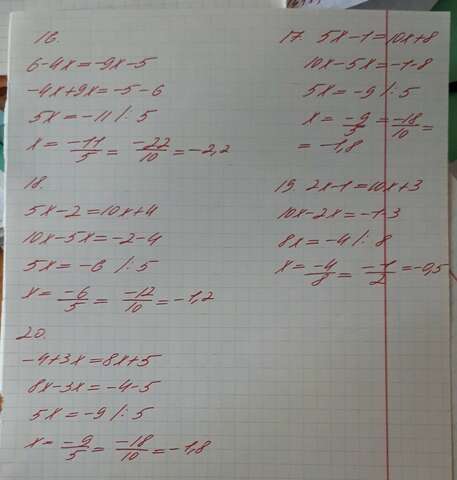 16.
6-4x=-9x-5
-4x+9x=-5-6
5x=-11 /:5
x= -11/5 = -22/10 =-2,2
17. 5x-1=10x+8
10x-5x=-1-8
5x=-9 /:5
x= -9/5 = -18/10 =
= -1,8
18.
5x-2=10x+4
10x-5x=-2-4
5x=-6 /:5
x= -6/5 = -12/10 =-1,2
19. 2x-1=10x+3
10x-2x=-1-3
8x=-4 /:8
x= -4/8 = -1/2 =-0,5
20.
-4+3x=8x+5
8x-3x=-4-5
5x=-9 /:5
x= -9/5 = -18/10 =-1,8